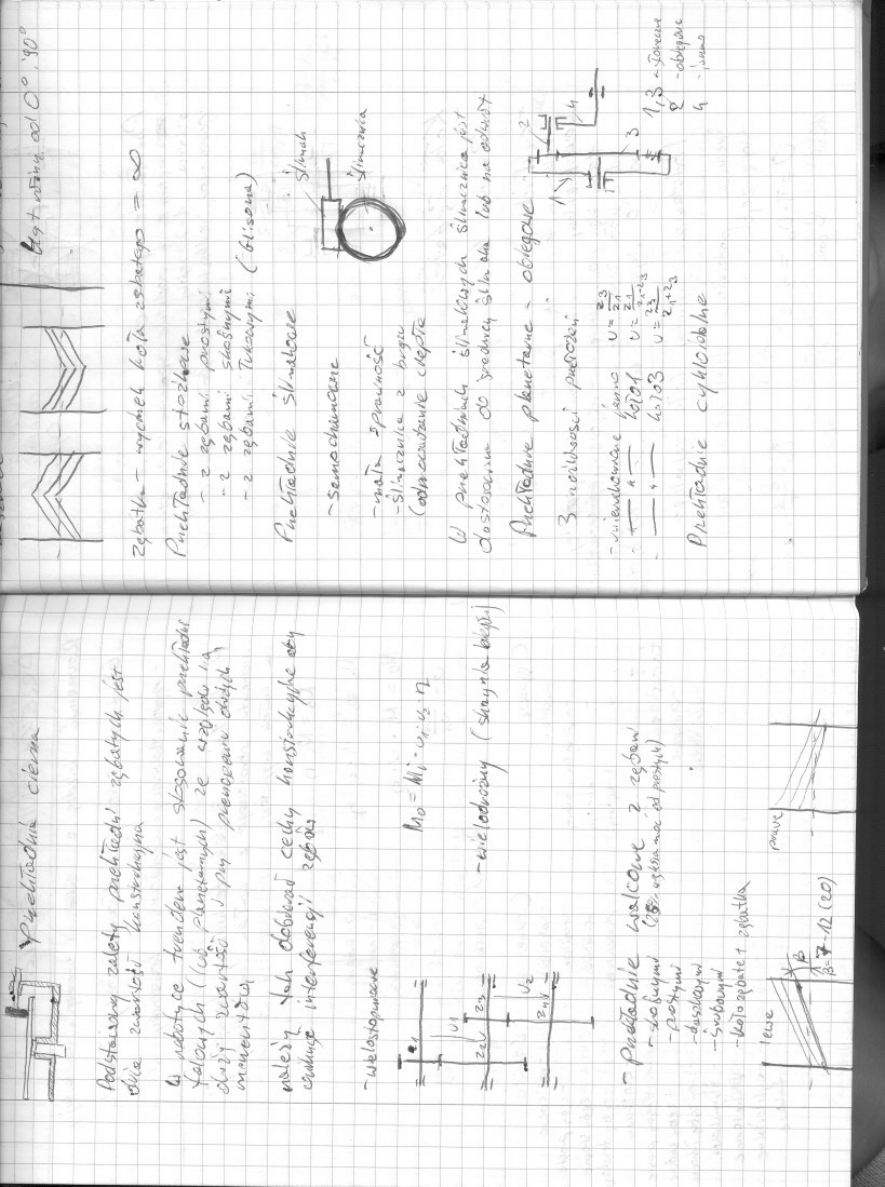 Przekładnia cierna
Podstawową zaletą przekładni zębatych jest
duża zwartość konstrukcyjna
W robotyce trendem jest stosowanie przekładni
falowych (lub planetarnych) ze względu na
dużą zwartość i przy przenoszeniu dużych
momentów
należy tak dobierać cechy konstrukcyjne aby
uniknąć interferencji zębów
- wielostopniowe
z1
u1
z2
z3
z4
u2
Mo = Mi · u1 · u2 · η
- wielodrożny (skrzynia biegów)
- Przekładnie walcowe z zębami
- skośnymi
- prostymi
- daszkowymi
- śrubowymi
- koło zębate + zębatka
lewe
β
β = 7 - 12 (20)
prawe
kąt osiowy od 0° : 90°
zębatka - wycinek koła zębatego = ∞
Przekładnie stożkowe
- z zębami prostymi
- z zębami skośnymi
- z zębami łukowymi (Glisona)
Przekładnie ślimakowe
ślimak
ślimacznica
- samohamowne
- mała sprawność
- ślimacznica z brązu
(odprowadzanie ciepła
W przekładniach ślimakowych ślimacznica jest
dostosowana do średnicy ślimaka lub na odwrót
Przekładnie planetarne - obiegowe
3 możliwości przełożeń
1
2
3
4
1,3 - słoneczne
2 - obiegowe
4 - jarzmo
- unieruchomione jarzmo u = z3/z1
- — " — koło 1 u = z1/z1+z3
- — " — koło 3 u = z3/z1+z3
Przekładnie cykloidalne